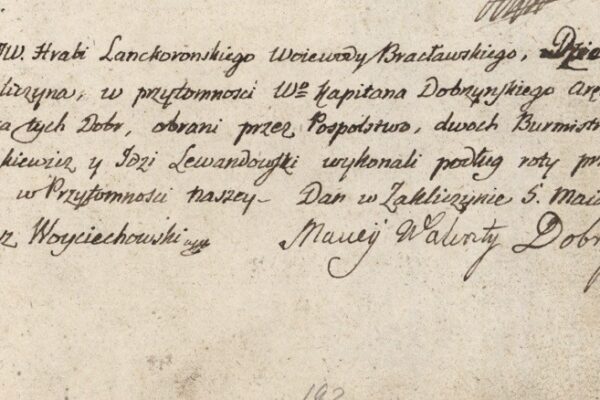 JW. Hrabi Lanckoronskiego Woiewody Bracławskiego, Dzie
liczyna, w przytomności Wo Kapitana Dobrzynskiego
a tych Dobr, obrani przez Pospolstwo, dwoch Burmistr
kiewicz y Idzi Lewandowski wykonali podług roty prz
w Przytomności naszey_ Dan w Zakliczynie 5. Maia
z Woyciechowski Maciey Dobr
192